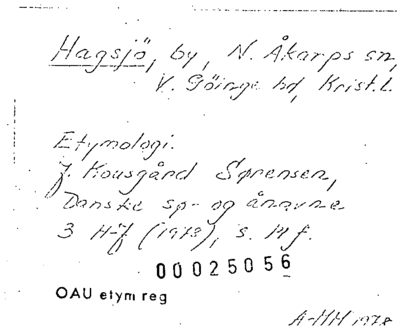 Hagsjö, by, N. Åkarps sn,
V. Göinge hd, Krist.l.
Etymologi.
J. Kousgård Sørensen,
Danske sø- og ånavne
3 H-J (1978), s. 14 f.
00025056
OAU etym reg
A-MH 1978